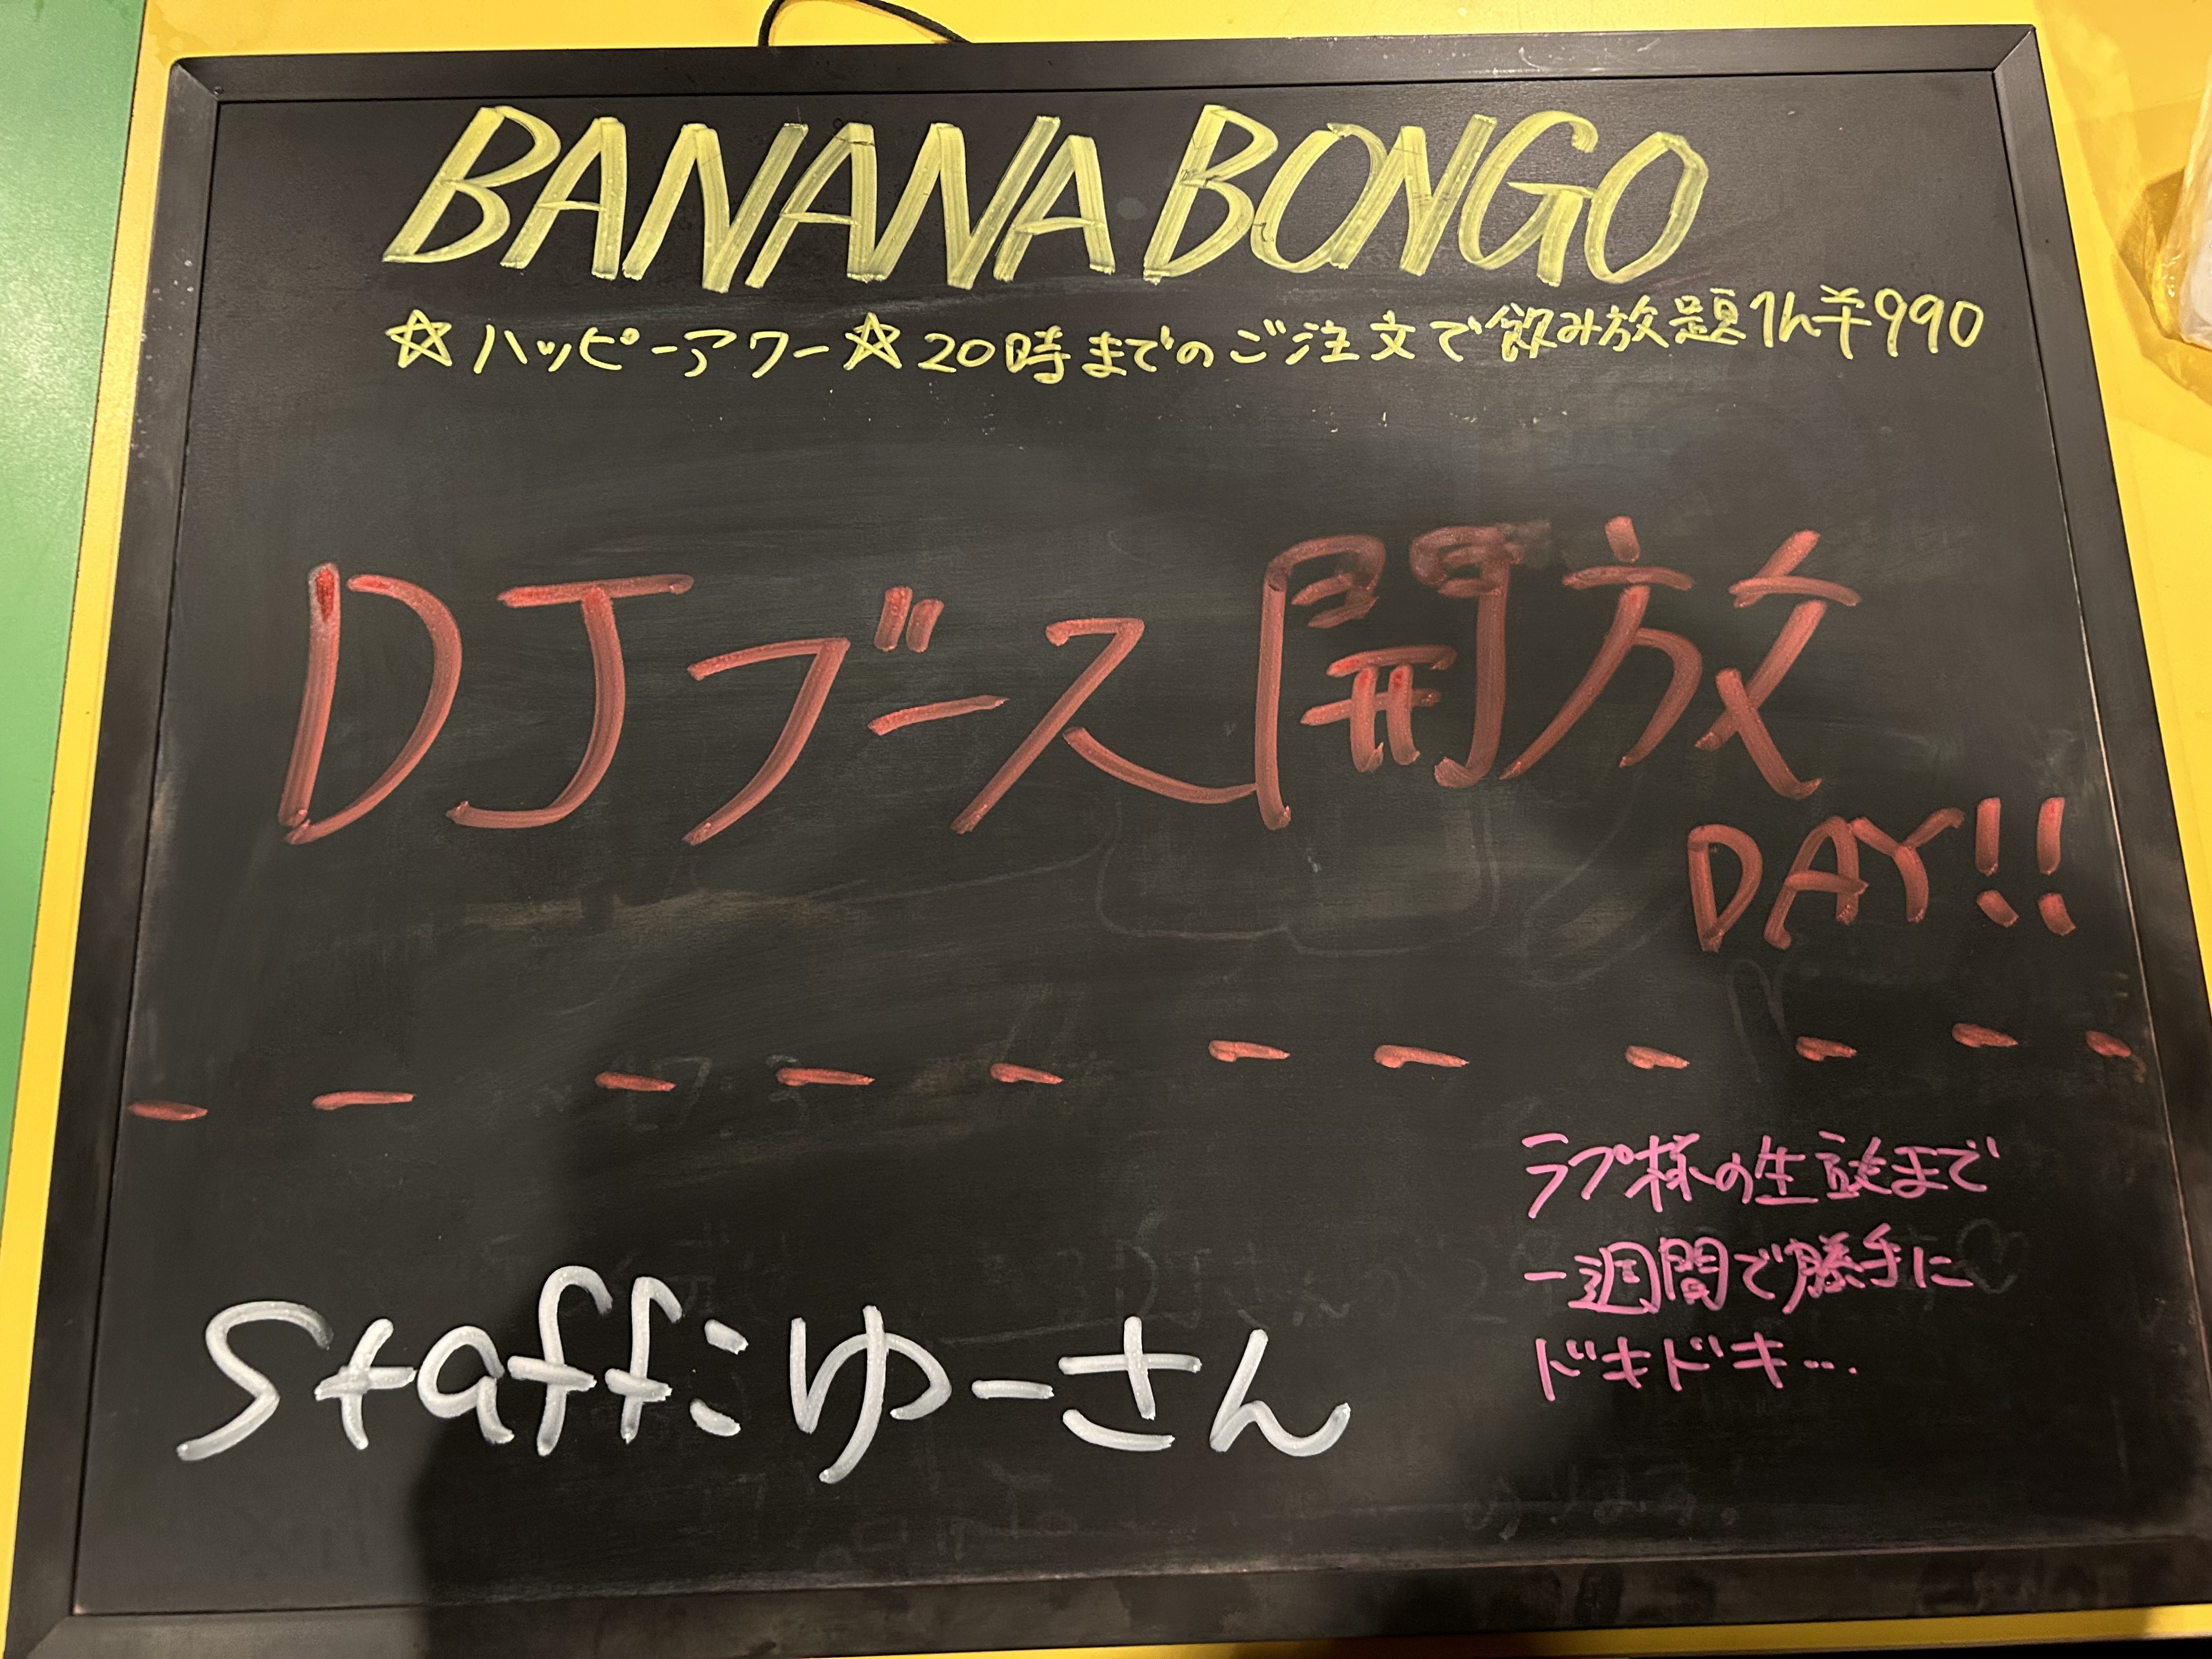 BANANA BONGO
☆ハッピーアワー☆20時までのご注文で飲み放題1h¥990
DJブース開放
DAY!!
ラプ杯の生放まで
一週間で勝手に
ドキドキ...
Staff:ゆーさん